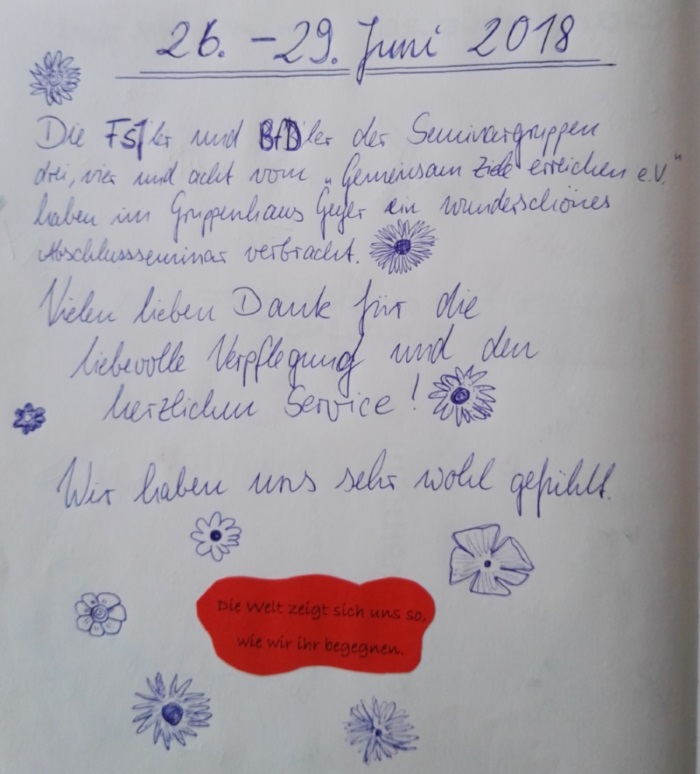 26. - 29. Juni 2018
Die FSJ'ler und BFD'ler der Seminargruppen
drei, vier und acht vom „Gemeinsam Ziele erreichen e.V."
haben im Gruppenhaus Geyer ein wunderschönes
Abschlussseminar verbracht.
Vielen lieben Dank für die
liebevolle Verpflegung und den
herzlichen Service!
Wir haben uns sehr wohl gefühlt.
Die Welt zeigt sich uns so,
wie wir ihr begegnen.